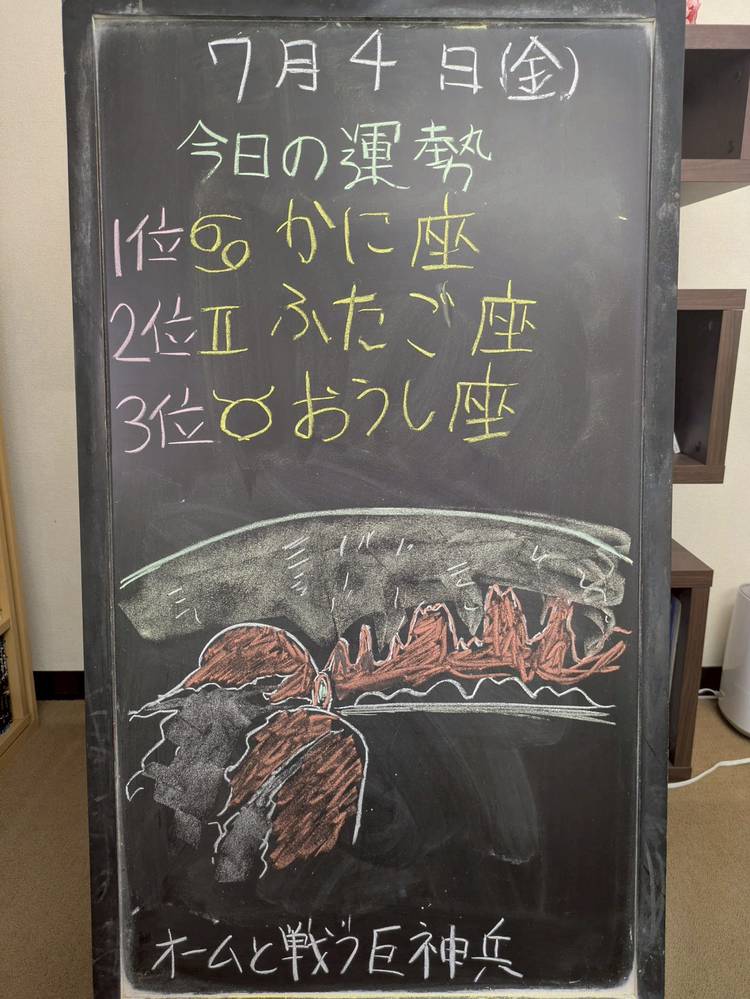 7月4日(金)
今日の運勢
1位♋かに座
2位♊ふたご座
3位♉おうし座
オームと戦う巨神兵